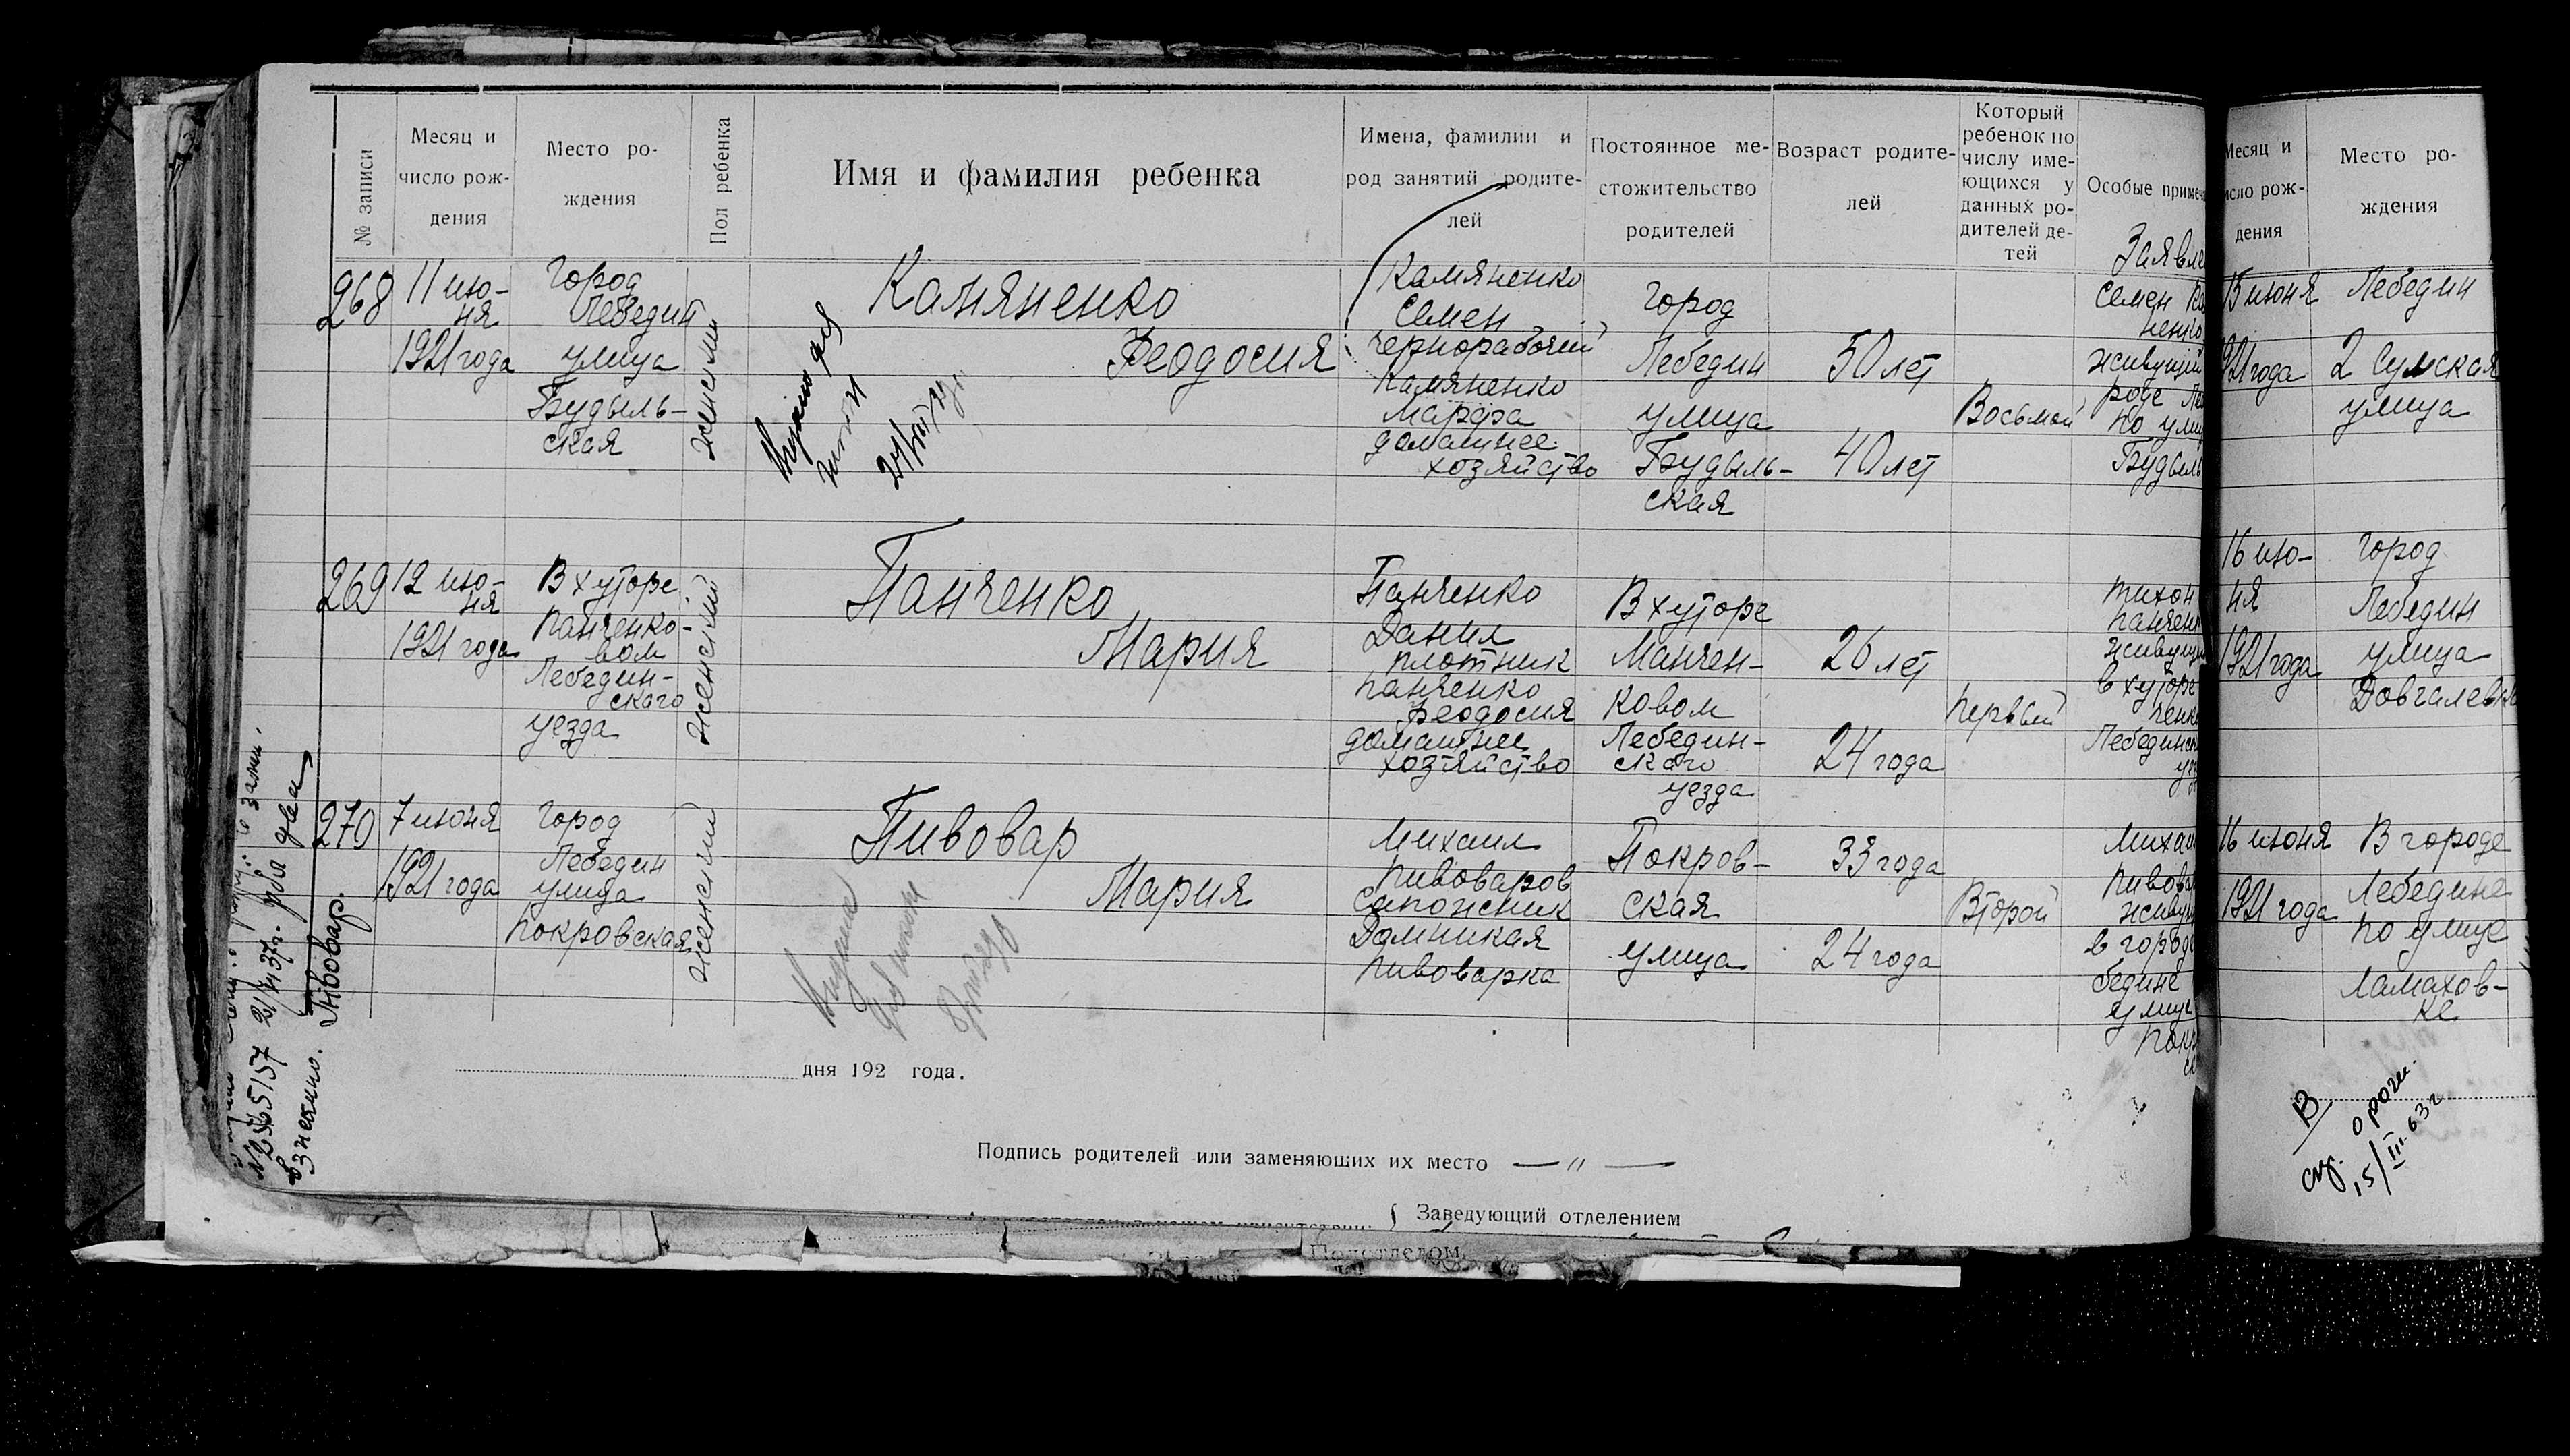 № записи
Месяц и
число рож-
дения
Место ро-
ждения
Пол ребенка
Имя и фамилия ребенка
Имена, фамилии и
род занятий родите-
лей
Постоянное ме-
стожительство
родителей
Возраст родите-
лей
Который
ребенок по
числу име-
ющихся у
данных ро-
дителей де-
тей
Особые примеча
268
11 ию-
ня
1921 года
Город
Лебедин
улица
Будыль-
ская
женский
Камяненко
Феодосия
Камяненко
Семен
Чернорабочий
Камяненко
Марфа
домашнее
хозяйство
Город
Лебедин
улица
Будыль-
ская
50 лет
40 лет
Восьмой
Заявле
Семен Ка
ненко
живущий
роде Ле
по ули
Будыль
269
12 ию-
ня
1921 года
В хуторе
Панченко-
вом
Лебедин-
ского
уезда
женский
Панченко
Мария
Панченко
Данил
плотник
Панченко
Феодосия
домашнее
хозяйство
В хуторе
Манчен-
ковом
Лебедин-
ского
уезда
26 лет
24 года
Первый
Тихон
Панченк
живущи
в хуторе
ченко
Лебединск
уез
270
7 июня
1921 года
Город
Лебедин
улица
Покровская
женский
Пивовар
Мария
Михаил
Пивоваров
Сапожник
Домникая
Пивоварка
Покров-
ская
улица
33 года
24 года
Второй
Михаи
Пивова
живущ
в городе
бедине
улице
Покр
ск
№ 2565157 21/4 37 г.
Пивовар.
дня 192 года.
Подпись родителей или заменяющих их место — " —
Заведующий отделением
Подотделом.
Месяц и
исло рож-
дения
Место ро-
ждения
15 июня
921 года
Лебедин
2 Сумская
улица
16 ию-
ня
1921 года
Город
Лебедин
улица
Довгалевка
16 июня
1921 года
В городе
Лебедине
по улице
Ламахов-
ке
В
о рожд.
15/III. 63 г